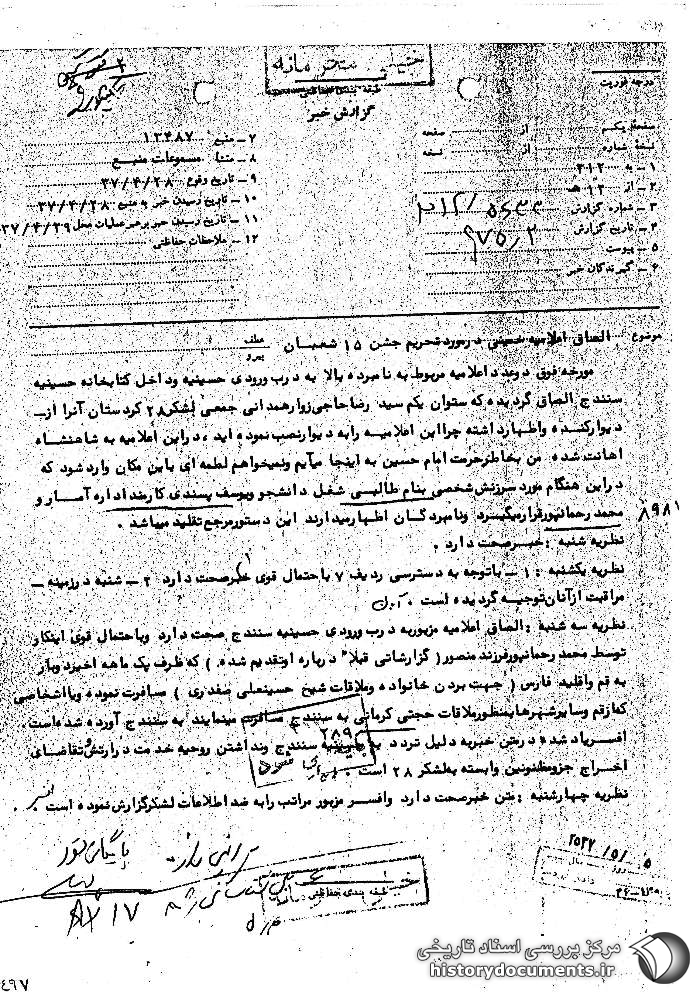 خیلی محرمانه
طبقه بندی حفاظتی
گزارش خبر
درجه فوریت
صفحه یکم از صفحه
نسخه شماره از نسخه
۱ـ به ۳۱۲
۲ـ از ۱۲ هـ
۳ـ شماره گزارش
۴ـ تاریخ گزارش
۵ـ پیوست
۶ـ گیرندگان خبر
۷ـ منبع ۱۳۴۸۷
۸ـ منشا مسموعات منبع
۹ـ تاریخ وقوع ۳۷/۴/۲۸
۱۰ـ تاریخ رسیدن خبر به منبع ۳۷/۴/۲۸
۱۱ـ تاریخ رسیدن خبر برهبر عملیات محل ۳۷/۴/۲۹
۱۲ـ ملاحظات حفاظتی
موضوع : الصاق اعلامیه خمینی درمورد تحریم جشن ۱۵ شعبان
عطف
پیرو
مورخه فوق دوعدد اعلامیه مربوط به نامبرده بالا به درب ورودی حسینیه وداخل کتابخانه حسینیه
سنندج الصاق گردیده که ستوان یکم سید رضا حاجی زوارهمدانی جمعی لشکر ۲۸ کردستان آنرا از ـ
دیوارکنده واظهارداشته چرااین اعلامیه رابه دیوارنصب نموده اید ، دراین اعلامیه به شاهنشاه
اهانت شده من بخاطرحرمت امام حسین به اینجا میآیم ونمیخواهم لطمه ای باین مکان وارد شود که
دراین هنگام مورد سرزنش شخصی بنام طالبی شغل دانشجو ویوسف پسندی کارمند اداره آمار و
محمد رحمانپورقرارمیگیرد ونامبردگان اظهارمیدارند این دستورمرجع تقلید میباشد .
۸۹۸۱
نظریه شنبه : خبرصحت دارد .
نظریه یکشنبه : ۱ ـ باتوجه به دسترسی ردیف ۷ باحتمال قوی خبرصحت دارد ۲ ـ شنبه درزمینه ـ
مراقبت ازآنان توجیه گردیده است .
نظریه سه شنبه : الصاق اعلامیه مزبوربه درب ورودی حسینیه سنندج صحت دارد وباحتمال قوی اینکار
توسط محمد رحمانپورفرزند منصور ( گزارشاتی قبلا" درباره اوتقدیم شده . ) که ظرف یک ماهه اخیردوبار
به قم واقلید فارس ( جهت بردن خانواده وملاقات شیخ حسینعلی صفدری ) مسافرت نموده ویااشخاصی
که ازقم وسایرشهرهابمنظورملاقات حجتی کرمانی به سنندج مسافرت مینمایند به سنندج آورده شده است .
افسریاد شده درمتن خبربه دلیل تردد به حسینیه سنندج ونداشتن روحیه خدمت درارتش وتقاضای
اخراج جزومظنونین وابسته به لشکر ۲۸ است .
نظریه چهارشنبه : متن خبرصحت دارد وافسر مزبور مراتب رابه ضد اطلاعات لشکرگزارش نموده است .
۲۸۹
بایگانی شود
۲۵۳۷/۵/۵
خیلی محرمانه
طبقه بندی حفاظتی
مرکز بررسی اسناد تاریخی
historydocuments.ir